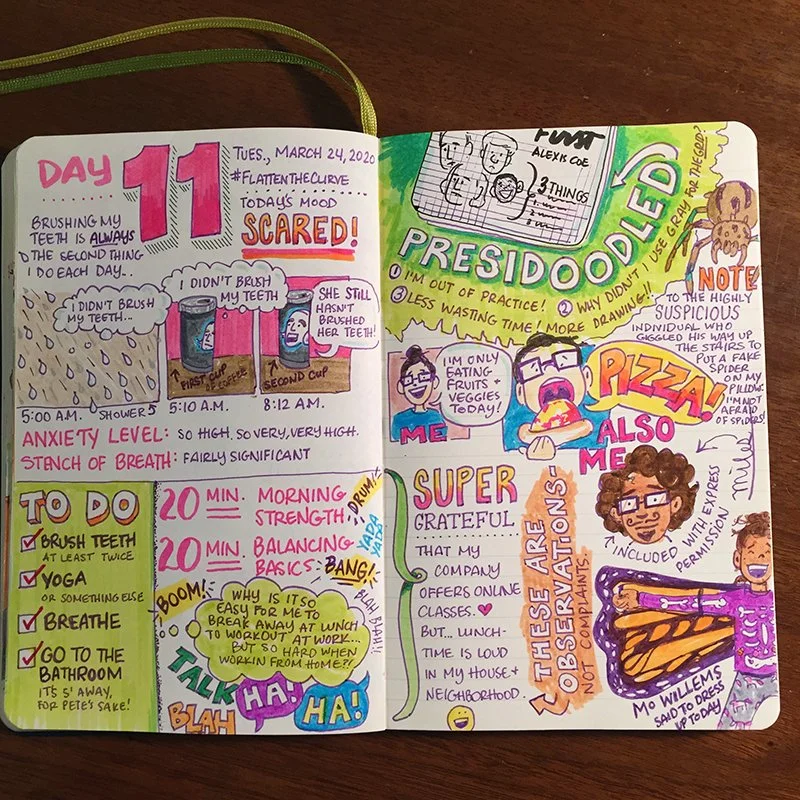 DAY 11
TUES., MARCH 24, 2020
#FLATTENTHECURVE
TODAY'S MOOD
SCARED!
BRUSHING MY
TEETH IS ALWAYS
THE SECOND THING
I DO EACH DAY...
I DIDN'T BRUSH
MY TEETH...
I DIDN'T BRUSH
MY TEETH
SHE STILL
HASN'T
BRUSHED
HER TEETH!
FIRST CUP
OF COFFEE
SECOND CUP
5:00 A.M. SHOWER
5:10 A.M.
8:12 A.M.
ANXIETY LEVEL: SO HIGH. SO VERY, VERY HIGH.
STENCH OF BREATH: FAIRLY SIGNIFICANT
TO DO
BRUSH TEETH
AT LEAST TWICE
YOGA
OR SOMETHING ELSE
BREATHE
GO TO THE
BATHROOM
IT'S 5' AWAY,
FOR PETE'S SAKE!
20 MIN. MORNING
STRENGTH
20 MIN. BALANCING
BASICS
DRUM!
YADA
YADA
BANG!
BLAH BLAH!
BOOM!
WHY IS IT SO
EASY FOR ME TO
BREAK AWAY AT LUNCH
TO WORKOUT AT WORK...
BUT SO HARD WHEN
WORKIN FROM HOME?!
TALK
BLAH
HA!
HA!
ALEXIS COE
3 THINGS
1.
2.
3.
PRESIDOODLED
1 I'M OUT OF PRACTICE!
2 WHY DIDN'T I USE GRAY FOR THE GRID?
3 LESS WASTING TIME! MORE DRAWING!!
NOTE
TO THE HIGHLY
SUSPICIOUS
INDIVIDUAL WHO
GIGGLED HIS WAY UP
THE STAIRS TO
PUT A FAKE
SPIDER
ON MY
PILLOW.
I'M NOT
AFRAID
OF SPIDERS!
miles
I'M ONLY
EATING
FRUITS +
VEGGIES
TODAY!
ME
PIZZA!
ALSO
ME
SUPER
GRATEFUL
THAT MY
COMPANY
OFFERS ONLINE
CLASSES.
BUT... LUNCH-
TIME IS LOUD
IN MY HOUSE +
NEIGHBORHOOD.
THESE ARE
OBSERVATIONS-
NOT COMPLAINTS.
INCLUDED WITH EXPRESS
PERMISSION
MO WILLEMS
SAID TO DRESS
UP TODAY